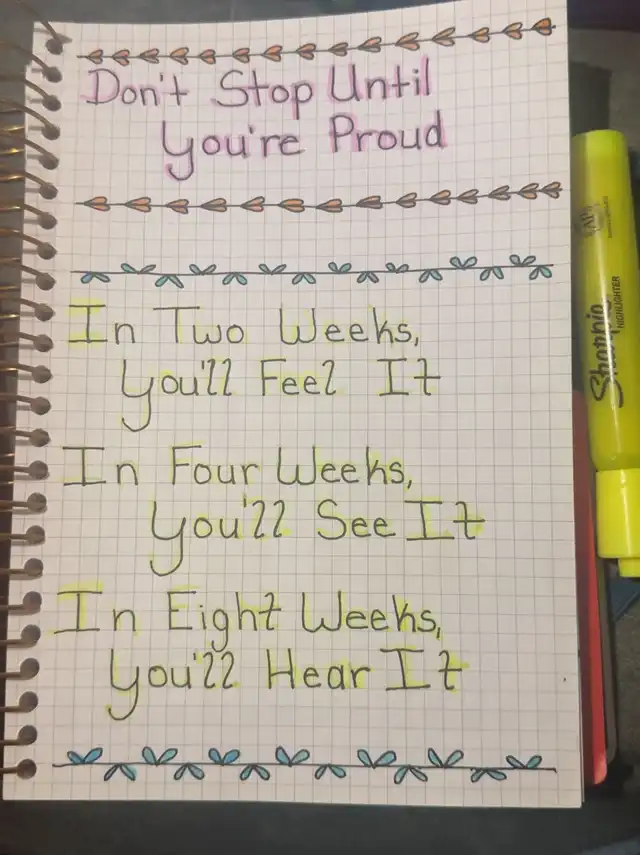 Don't Stop Until
You're Proud
In Two Weeks,
You'll Feel It
In Four Weeks,
You'll See It
In Eight Weeks,
You'll Hear It
Sharpie
HIGHLIGHTER